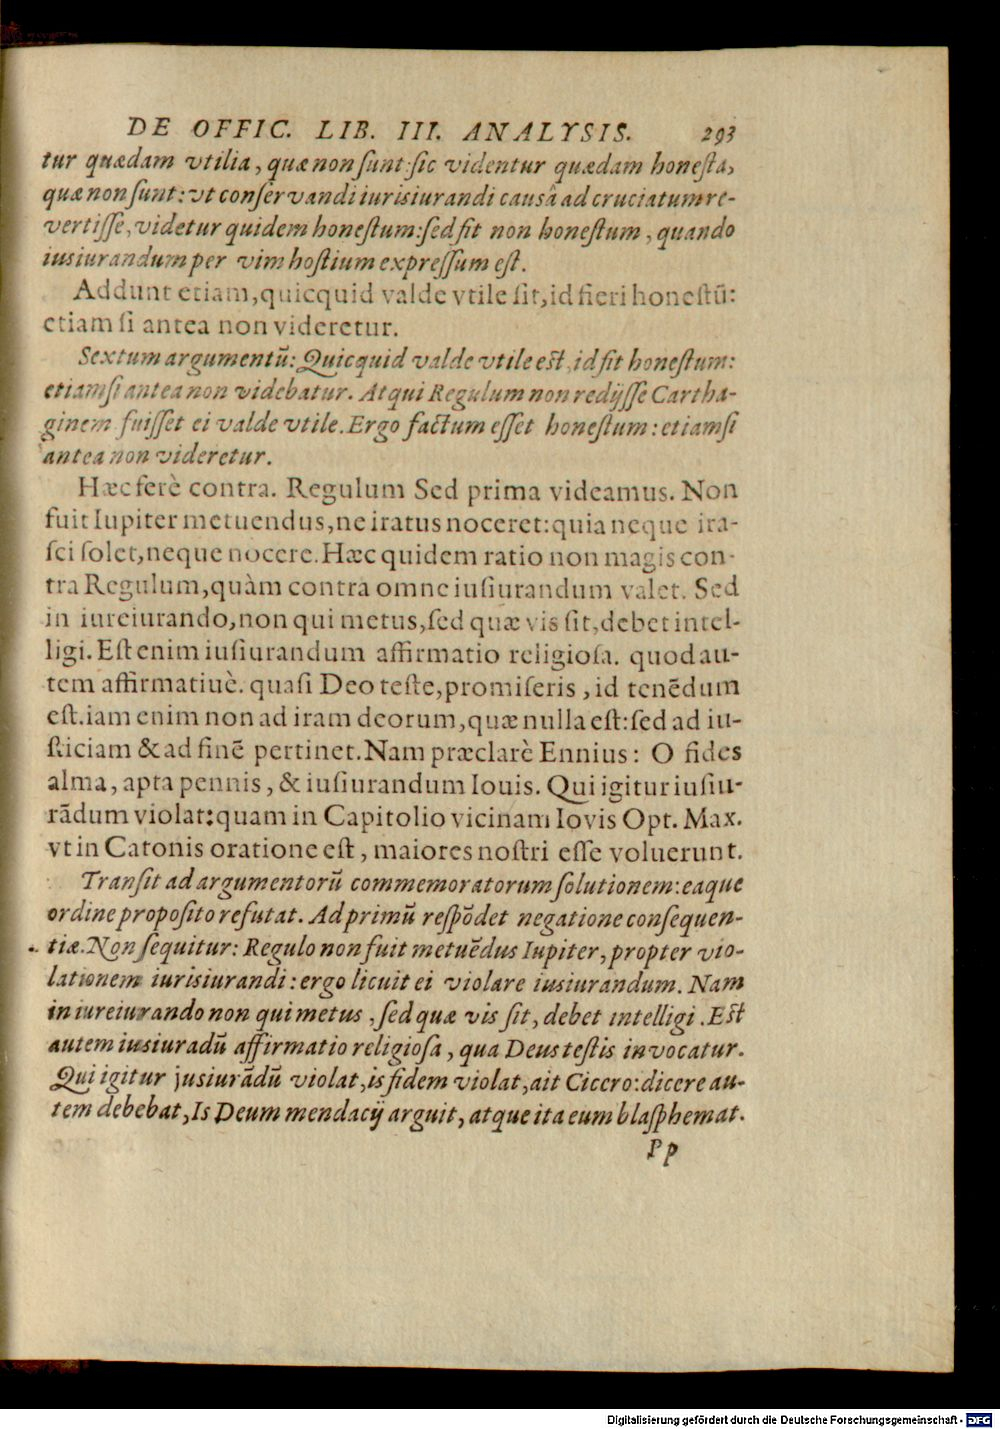 DE OFFIC. LIB. III. ANALYSIS. 293
tur quædam vtilia, quæ non ſunt: ſic videntur quædam honeſta,
quæ non ſunt: vt conſervandi iurisiurandi causâ ad cruciatum re-
vertiſſe, videtur quidem honeſtum: ſed fit non honeſtum, quando
iusiurandum per vim hoſtium expreſſum eſt.
Addunt etiam, quicquid valde vtile ſit, id fieri honeſtū:
etiam ſi antea non videretur.
Sextum argumentū: Quicquid valde vtile eſt, id fit honeſtum:
etiamſi antea non videbatur. Atqui Regulum non redijſſe Cartha-
ginem fuiſſet ei valde vtile. Ergo factum eſſet honeſtum: etiamſi
antea non videretur.
Hæc ferè contra. Regulum Sed prima videamus. Non
fuit Iupiter metuendus, ne iratus noceret: quia neque ira-
ſci ſolet, neque nocere. Hæc quidem ratio non magis con-
tra Regulum, quàm contra omne iuſiurandum valet. Sed
in iureiurando, non qui metus, ſed quæ vis ſit, debet intel-
ligi. Eſt enim iuſiurandum affirmatio religioſa. quod au-
tem affirmatiuè. quaſi Deo teſte, promiſeris, id tenēdum
eſt. iam enim non ad iram deorum, quæ nulla eſt: ſed ad iu-
ſticiam & ad finē pertinet. Nam præclarè Ennius: O fides
alma, apta pennis, & iuſiurandum Iouis. Qui igitur iuſiu-
rādum violat: quam in Capitolio vicinam Iovis Opt. Max.
vt in Catonis oratione eſt, maiores noſtri eſſe voluerunt.
Tranſit ad argumentorū commemoratorum ſolutionem: eaque
ordine propoſito refutat. Ad primū reſpōdet negatione conſequen-
tiæ. Non ſequitur: Regulo non fuit metuēdus Iupiter, propter vio-
lationem iurisiurandi: ergo licuit ei violare iusiurandum. Nam
in iureiurando non qui metus, ſed quæ vis ſit, debet intelligi. Eſt
autem iusiuradū affirmatio religioſa, qua Deus teſtis invocatur.
Qui igitur jusiurādū violat, is fidem violat, ait Cicero: dicere au-
tem debebat, Is Deum mendacij arguit, atque ita eum blaſphemat.
Pp
Digitalisierung gefördert durch die Deutsche Forschungsgemeinschaft - DFG